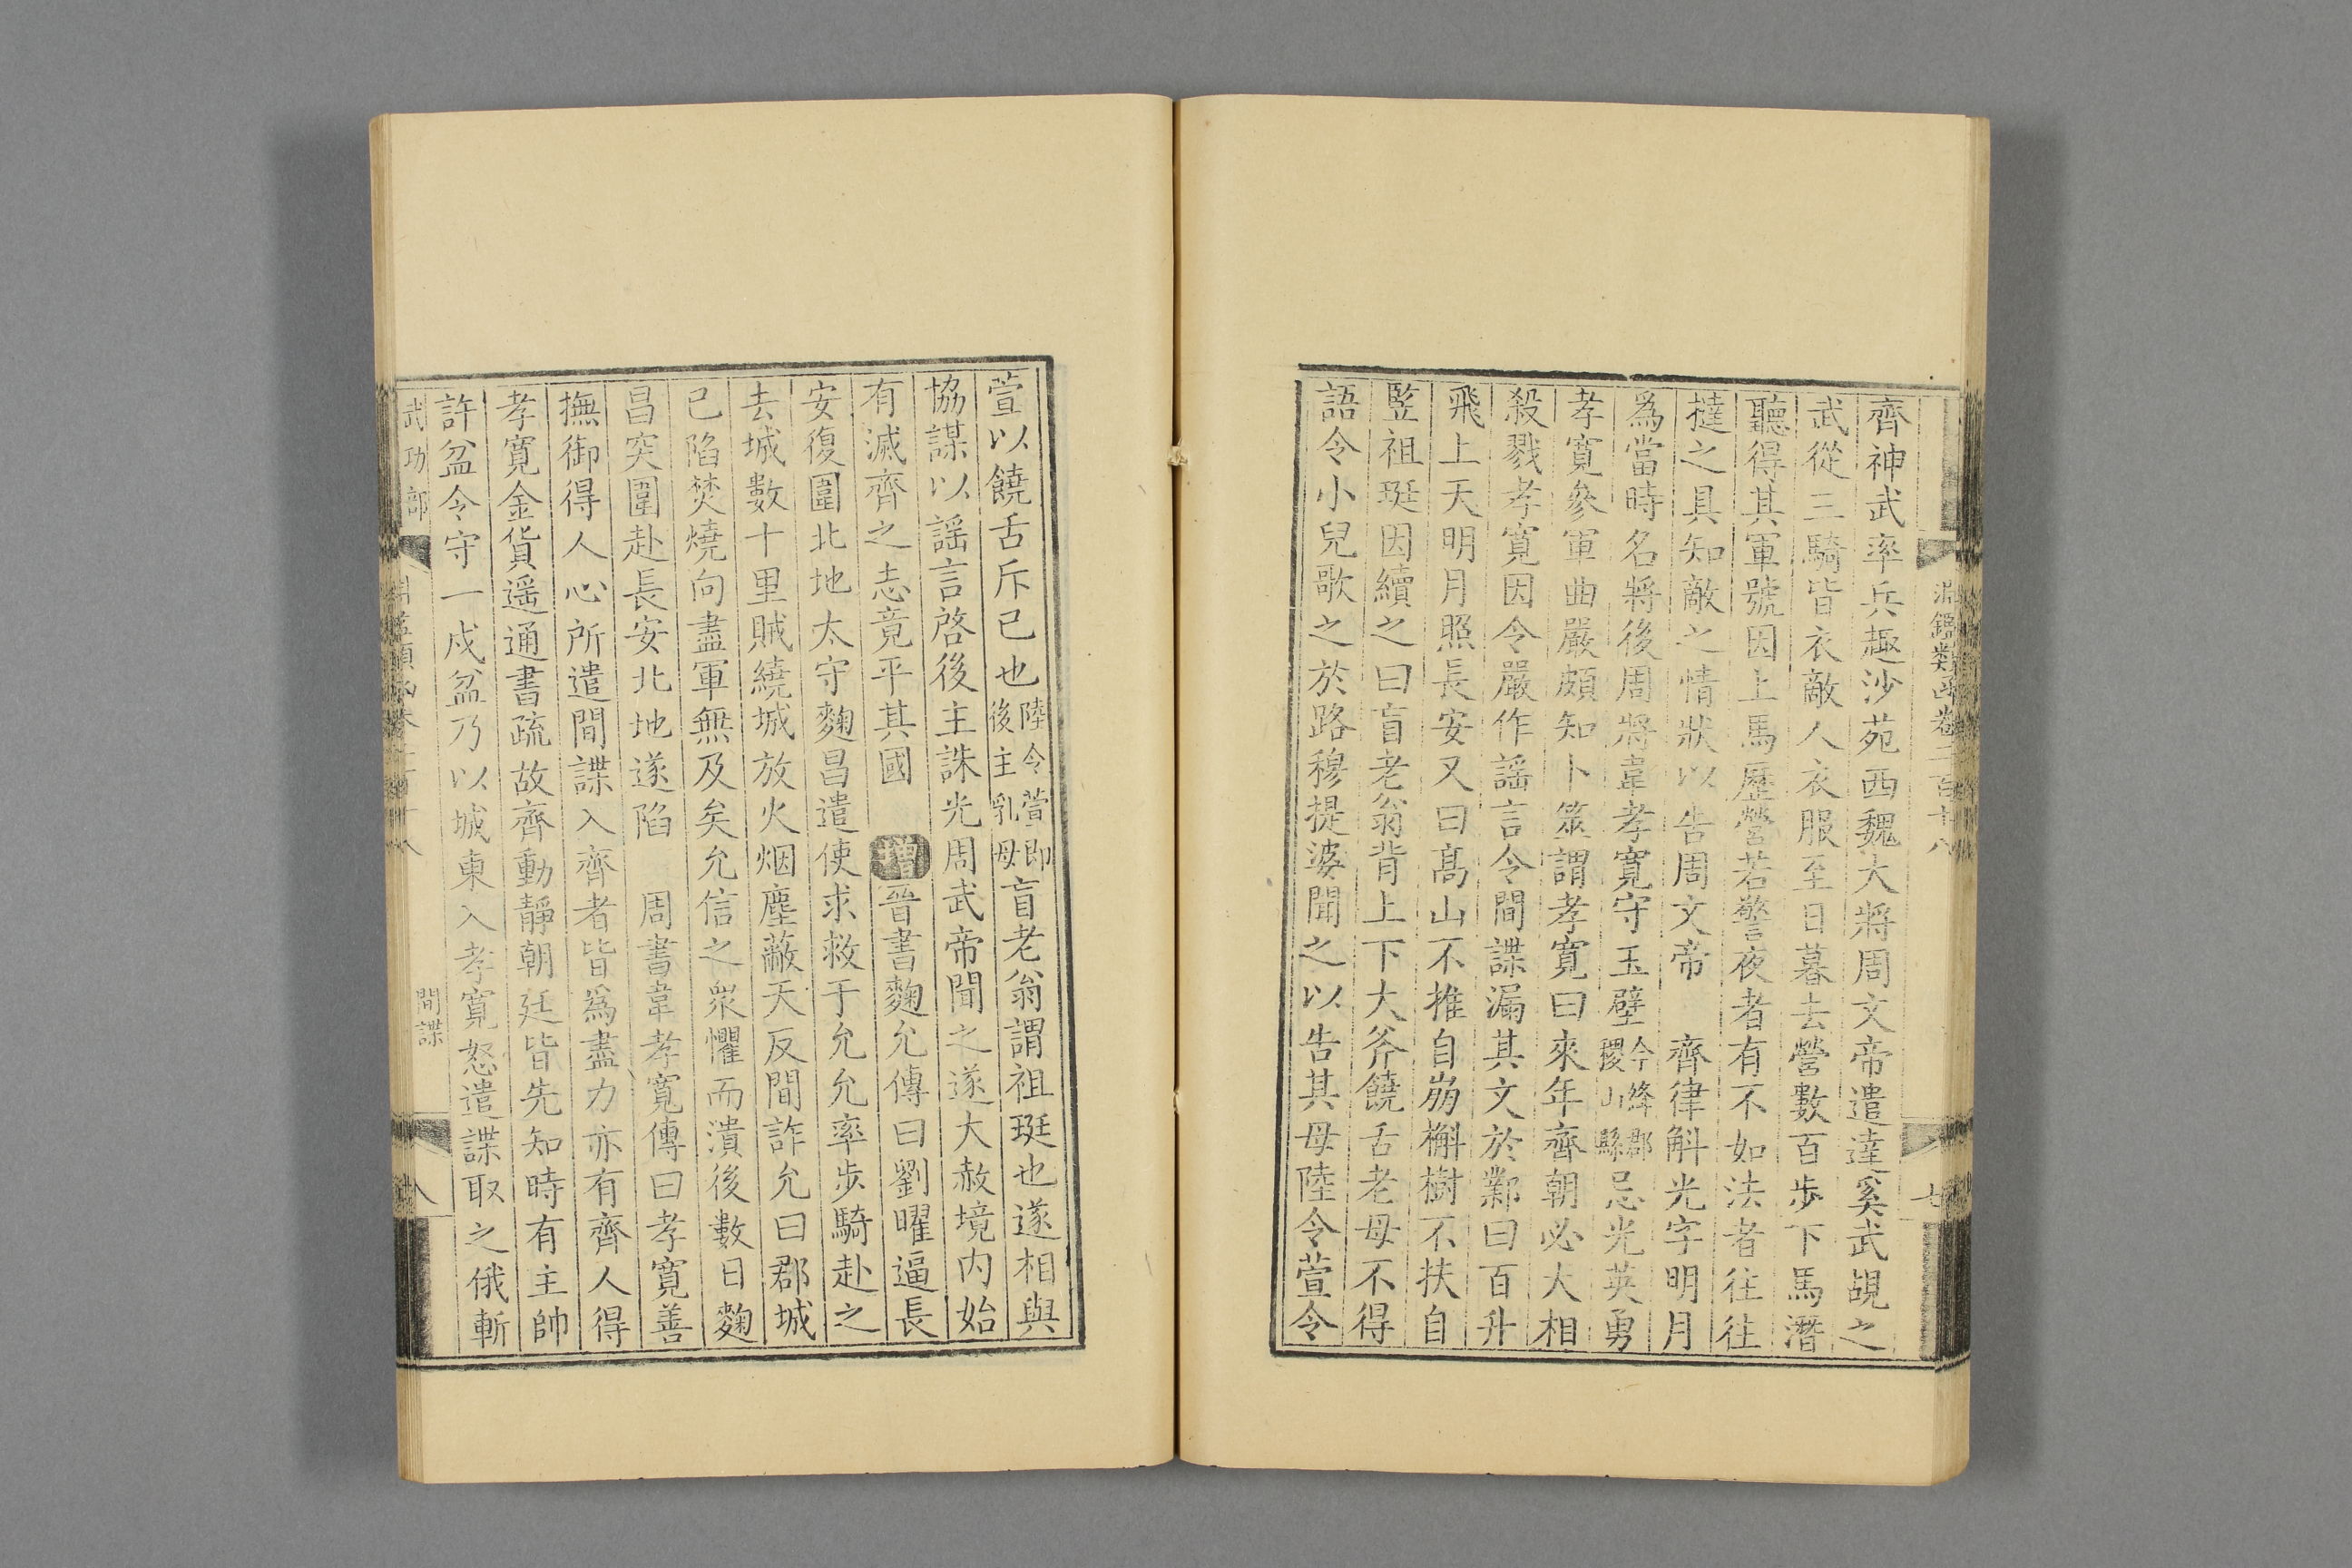 淵鑑類函卷二百十八
七
齊神武率兵趣沙苑西魏大將周文帝遣達奚武覘之
武從三騎皆衣敵人衣服至日暮去營數百步下馬潛
聽得其軍號因上馬歷營若警夜者有不如法者往往
撻之具知敵之情狀以告周文帝　齊律斛光字明月
爲當時名將後周將韋孝寬守玉壁今絳郡稷山縣忌光英勇
孝寬參軍曲嚴頗知卜筮謂孝寬曰來年齊朝必大相
殺戮孝寬因令嚴作謡言令間諜漏其文於鄴曰百升
飛上天明月照長安又曰髙山不推自崩槲樹不扶自
竪祖珽因續之曰盲老翁背上下大斧饒舌老母不得
語令小兒歌之於路穆提婆聞之以告其母陸令萱令
萱以饒舌斥已也陸令萱即後主乳母盲老翁謂祖珽也遂相與
協謀以謡言啓後主誅光周武帝聞之遂大赦境内始
有滅齊之志竟平其國　增晉書麴允傳曰劉曜逼長
安復圍北地太守麴昌遣使求救于允允率步騎赴之
去城數十里賊繞城放火烟塵蔽天反間詐允曰郡城
已陷焚燒向盡軍無及矣允信之衆懼而潰後數日麴
昌突圍赴長安北地遂陷　周書韋孝寬傳曰孝寬善
撫御得人心所遣間諜入齊者皆爲盡力亦有齊人得
孝寬金貨遥通書疏故齊動靜朝廷皆先知時有主帥
許盆令守一戍盆乃以城東入孝寬怒遣諜取之俄斬
武功部
間諜
八